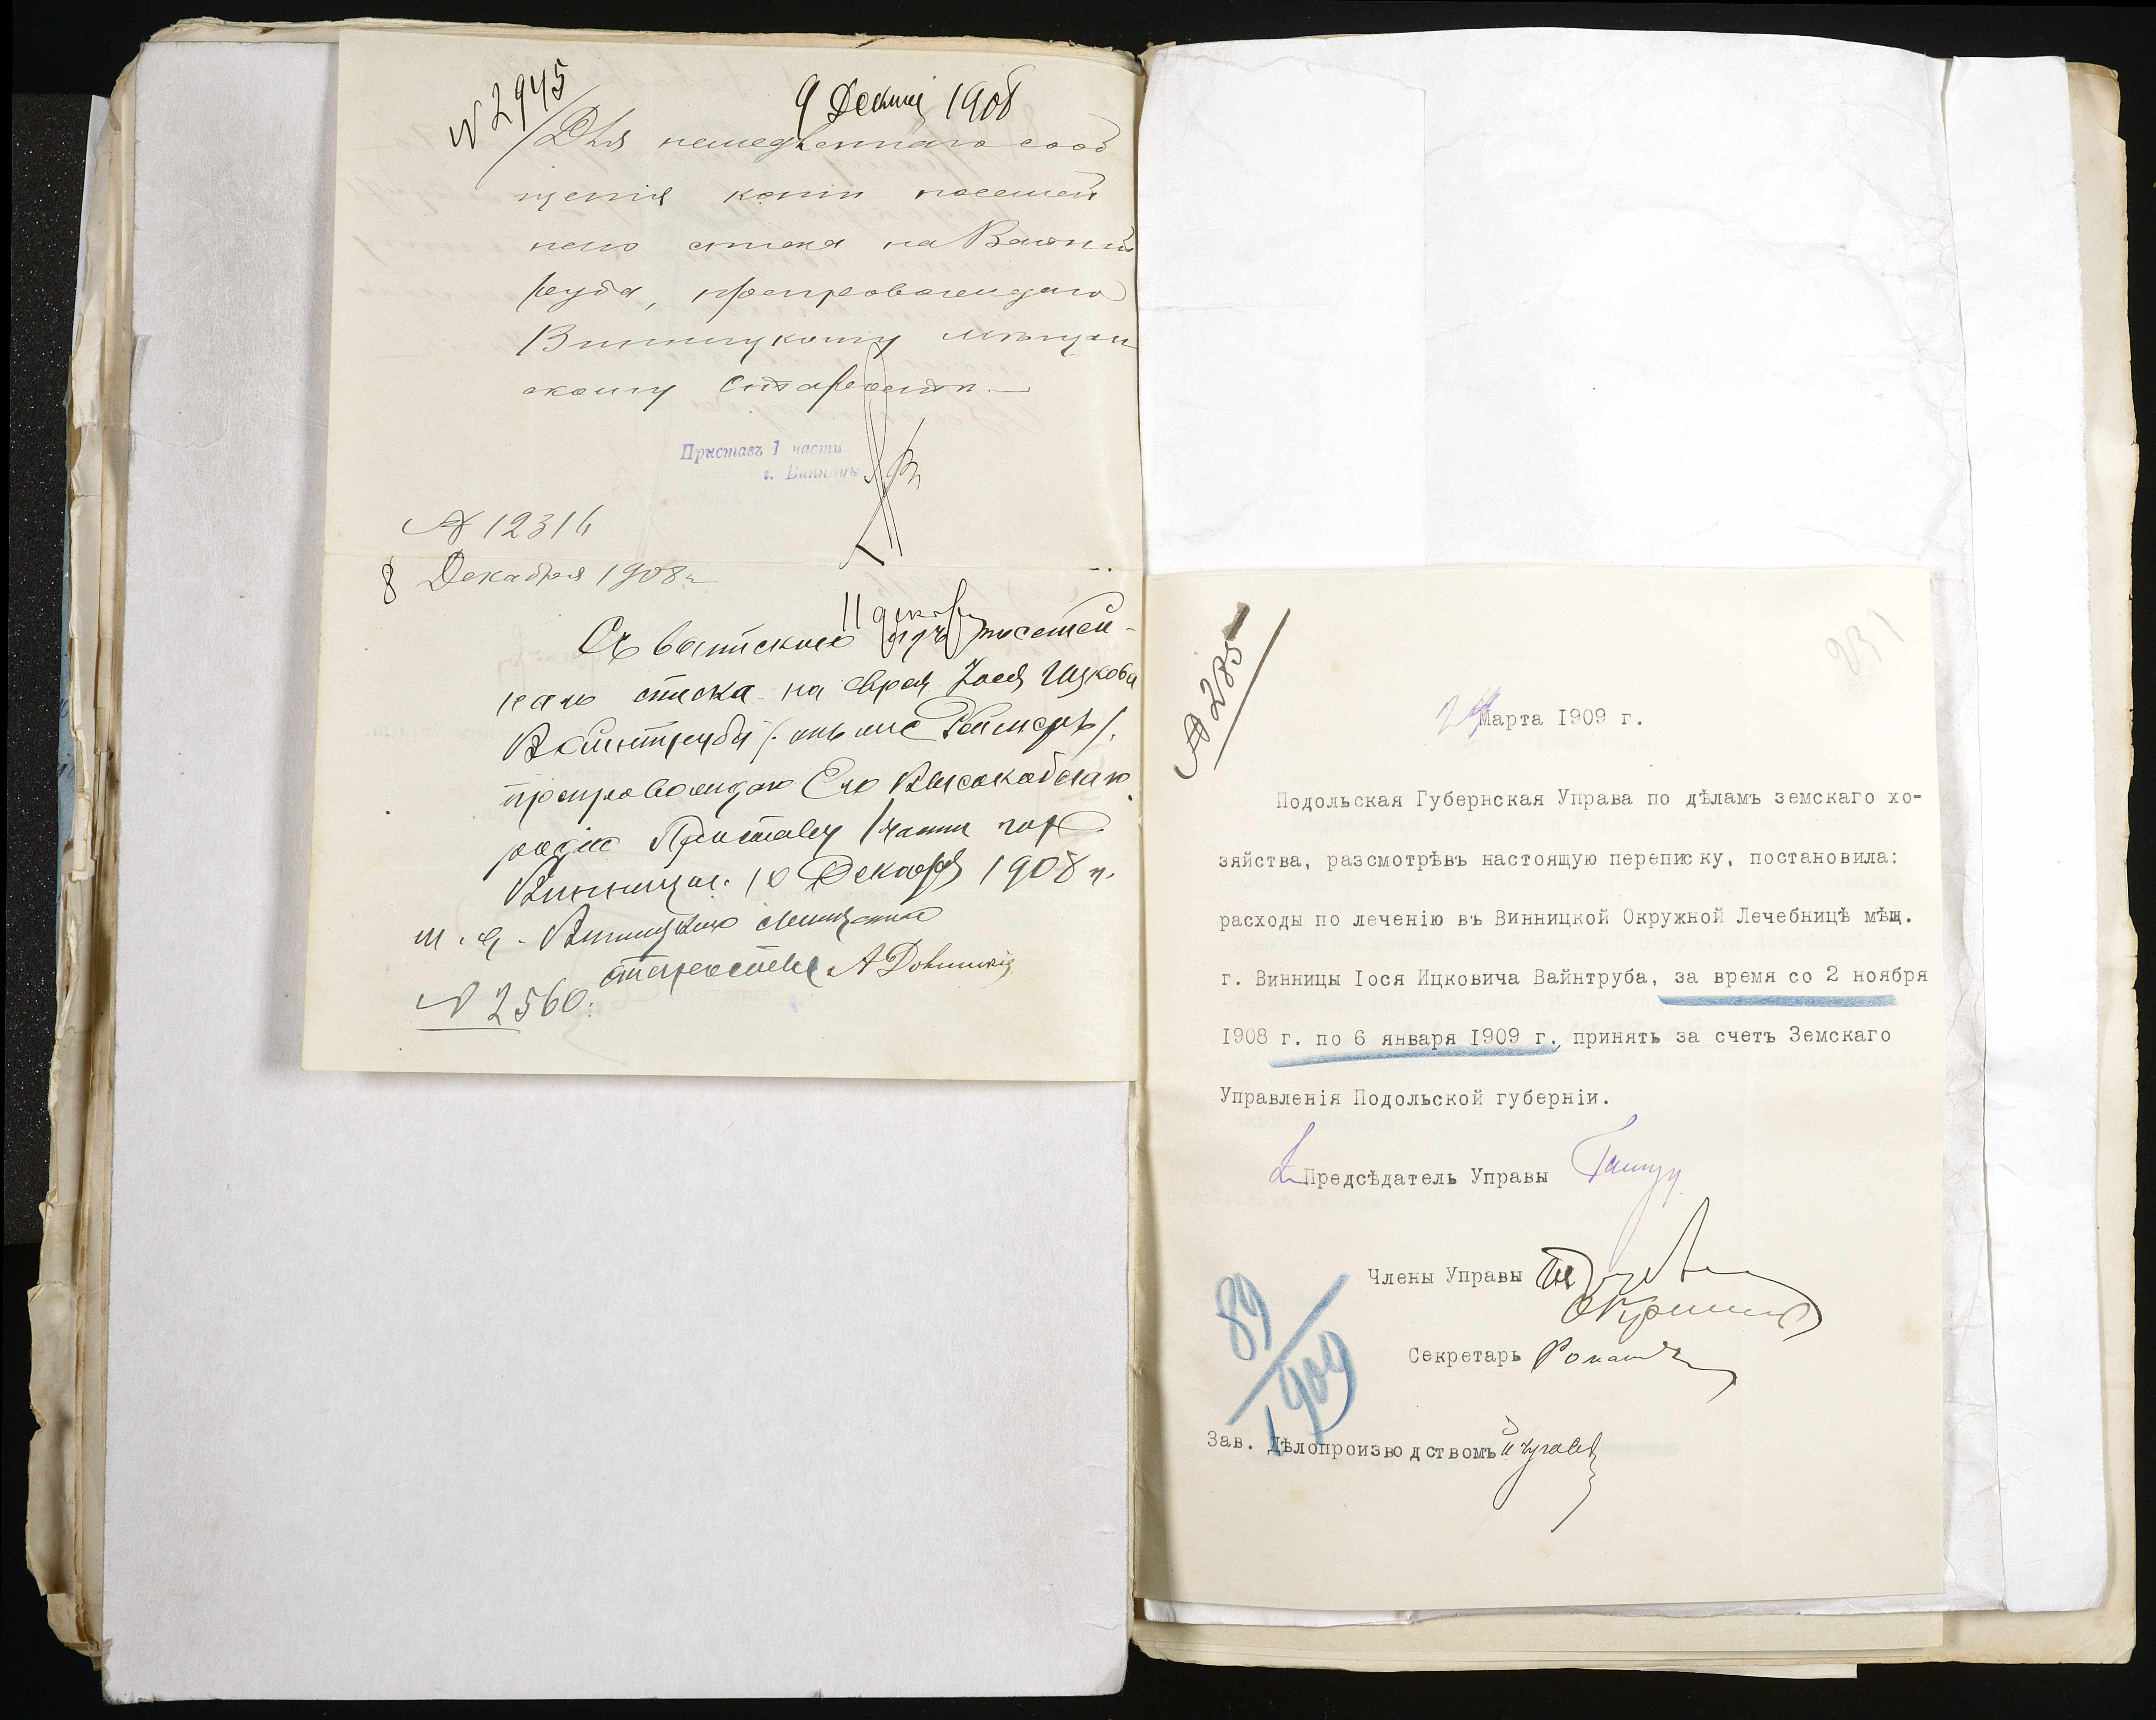 № 2945
9 Декаб 1908
Для немедленнаго сооб
щенія копіи посемей
наго списка на Вайнт
руба, препровождаю
Винницкому мѣщан
скому Старостѣ.—
Приставъ 1 части
г. Винницы
№ 12316
8 Декабря 1908 г.
11 декабр
Съ выпискою изъ посемей-
наго списка на еврея Іося Ицкова
Вайнтруба
препровождаю Его Высокоблаго
родію Приставу 1 части гор.
Винницы. 10 Декабря 1908 г.
И. д. Винницкаго мещанскаго
старосты
№ 2560.
231
№ 2851
24 Марта 1909 г.
Подольская Губернская Управа по дѣламъ земскаго хо-
зяйства, разсмотрѣвъ настоящую переписку, постановила:
расходы по леченію въ Винницкой Окружной Лечебницѣ мѣщ.
г. Винницы Іося Ицковича Вайнтруба, за время со 2 ноября
1908 г. по 6 января 1909 г., принять за счетъ Земскаго
Управленія Подольской губерніи.
Предсѣдатель Управы
Члены Управы
Секретарь
89/1909
Зав. Дѣлопроизводствомъ